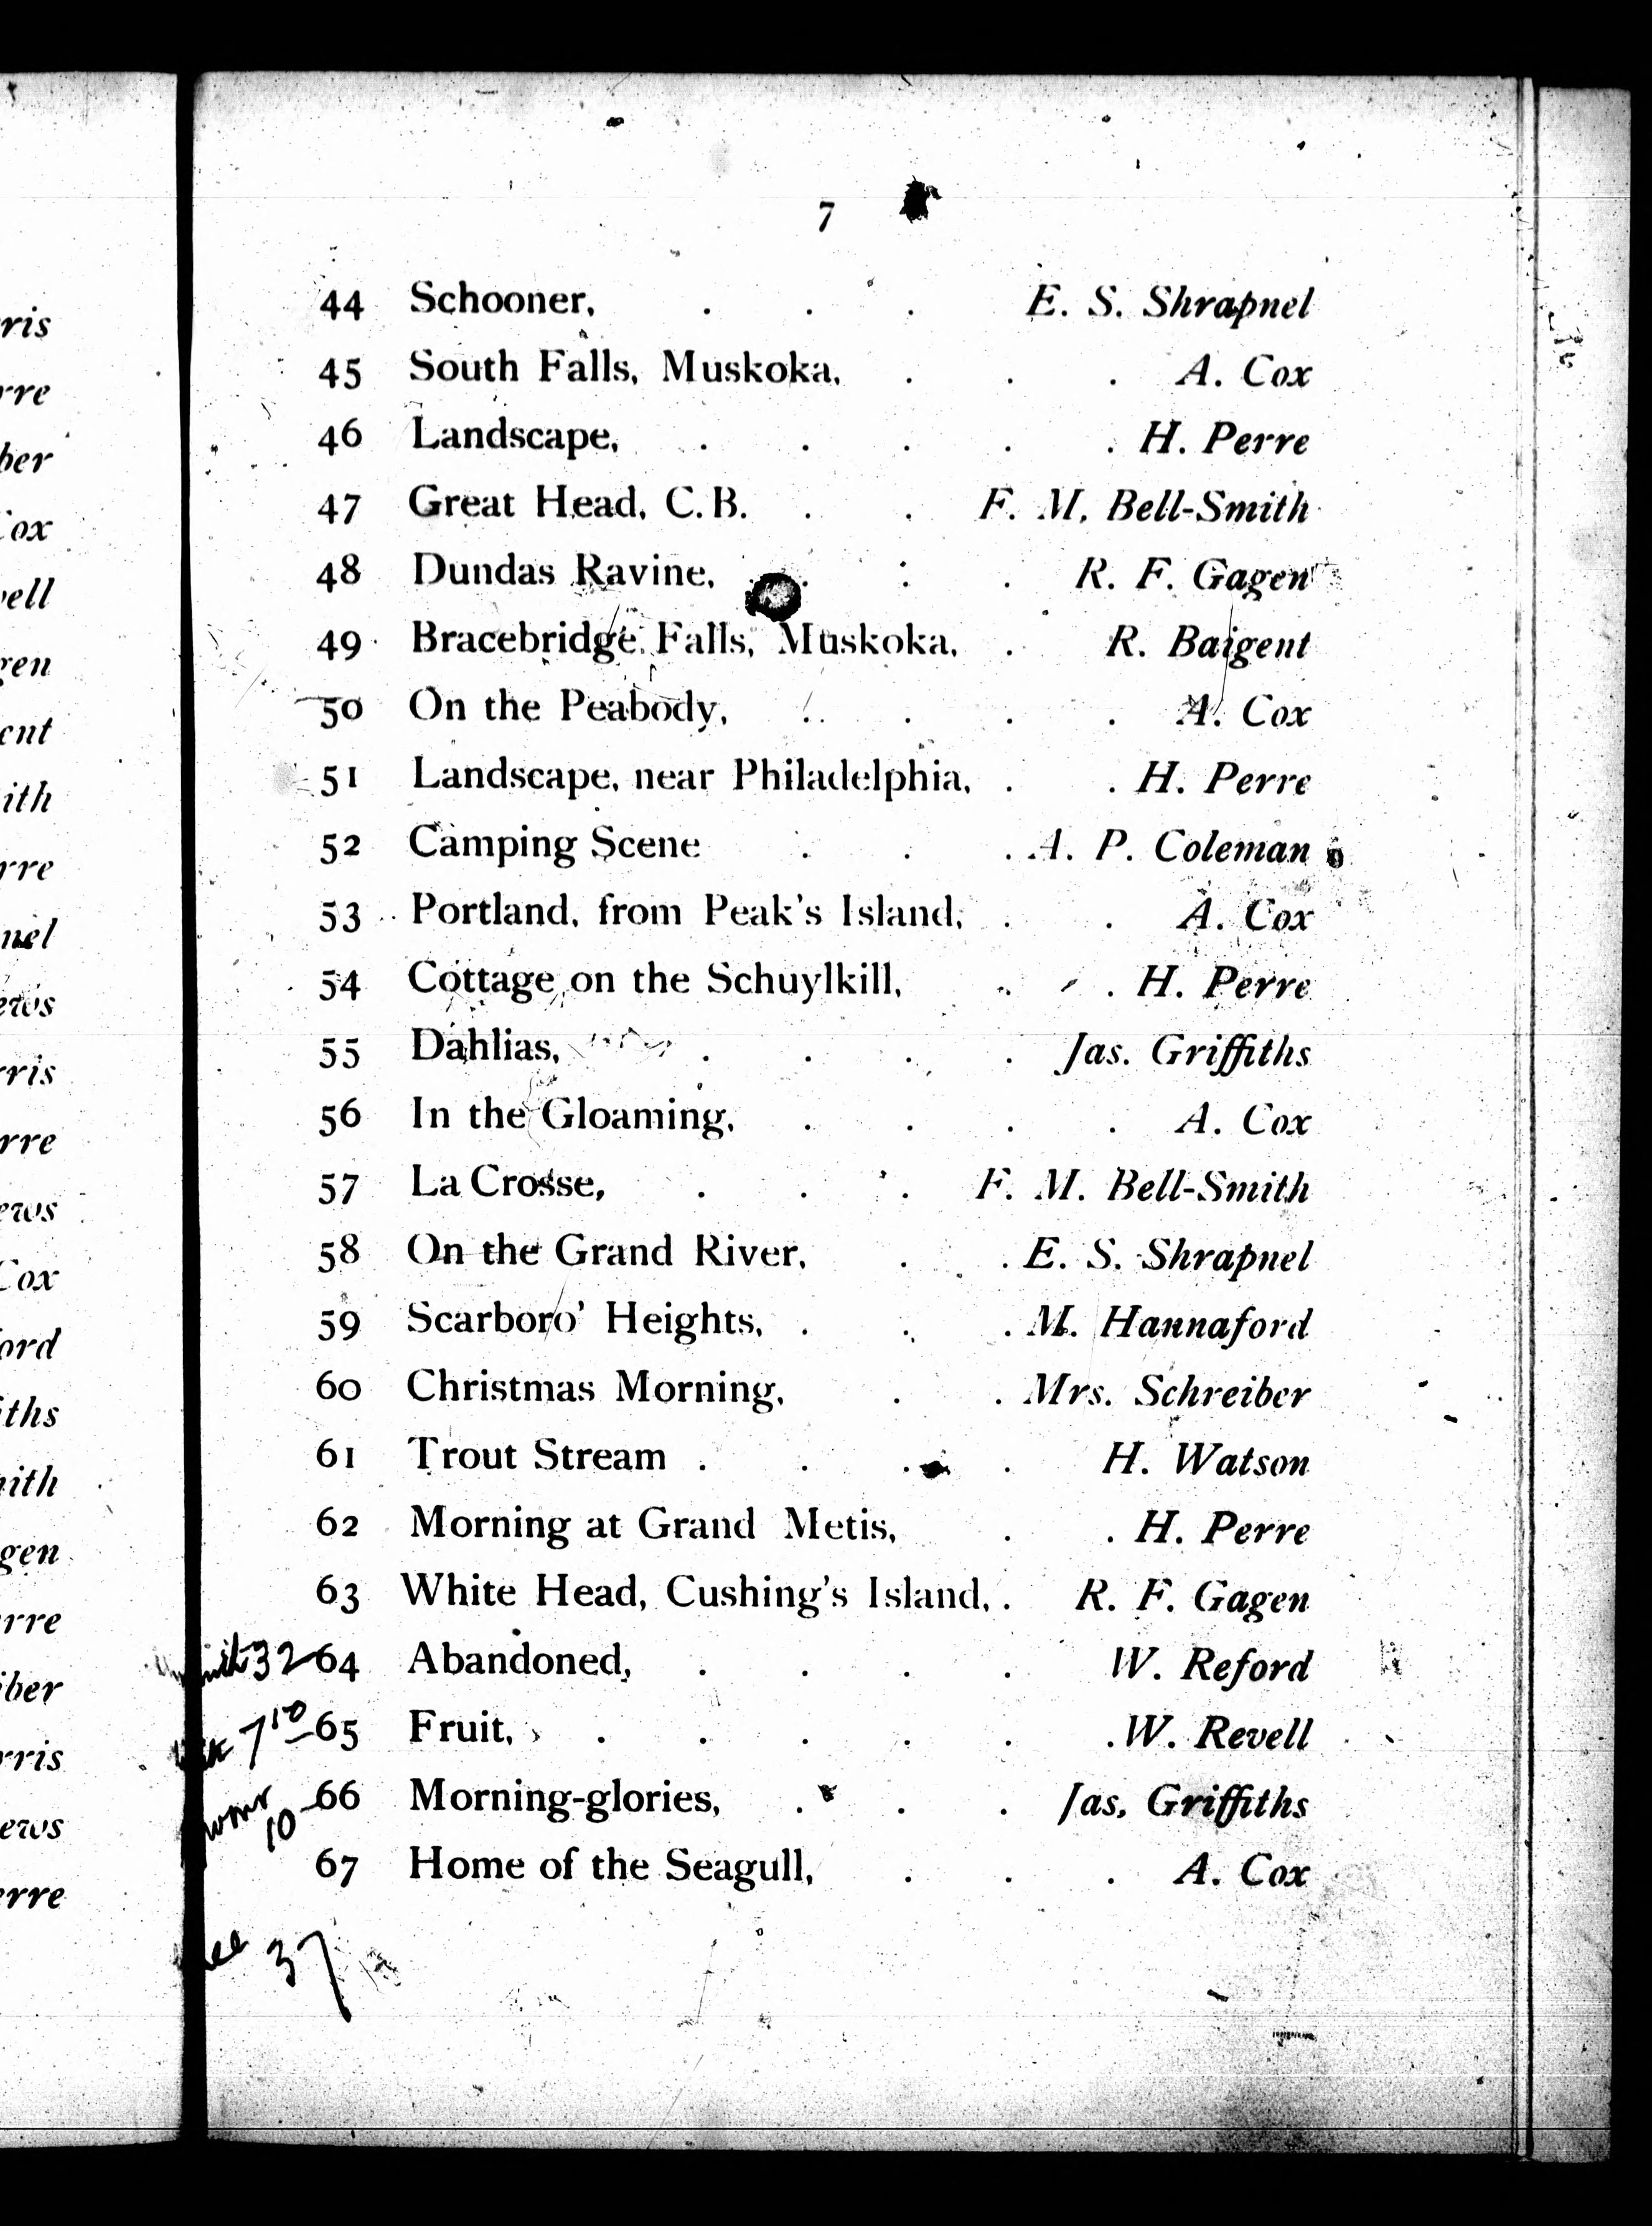 7
44 Schooner, . . . E. S. Shrapnel
45 South Falls, Muskoka, . . . A. Cox
46 Landscape, . . . . . H. Perre
47 Great Head, C. B. . . F. M. Bell-Smith
48 Dundas Ravine, . . . R. F. Gagen
49 Bracebridge Falls, Muskoka, . R. Baigent
50 On the Peabody, . . . . A. Cox
51 Landscape, near Philadelphia, . . H. Perre
52 Camping Scene . . . A. P. Coleman
53 Portland, from Peak's Island, . . A. Cox
54 Cottage on the Schuylkill, . . H. Perre
55 Dahlias, . . . . Jas. Griffiths
56 In the Gloaming, . . . . A. Cox
57 La Crosse, . . . F. M. Bell-Smith
58 On the Grand River, . . E. S. Shrapnel
59 Scarboro' Heights, . . . M. Hannaford
60 Christmas Morning, . . Mrs. Schreiber
61 Trout Stream . . . . H. Watson
62 Morning at Grand Metis, . . H. Perre
63 White Head, Cushing's Island, . R. F. Gagen
32 64 Abandoned, . . . . W. Reford
7 10 65 Fruit, . . . . . . W. Revell
10 66 Morning-glories, . . . Jas. Griffiths
67 Home of the Seagull, . . . A. Cox
37